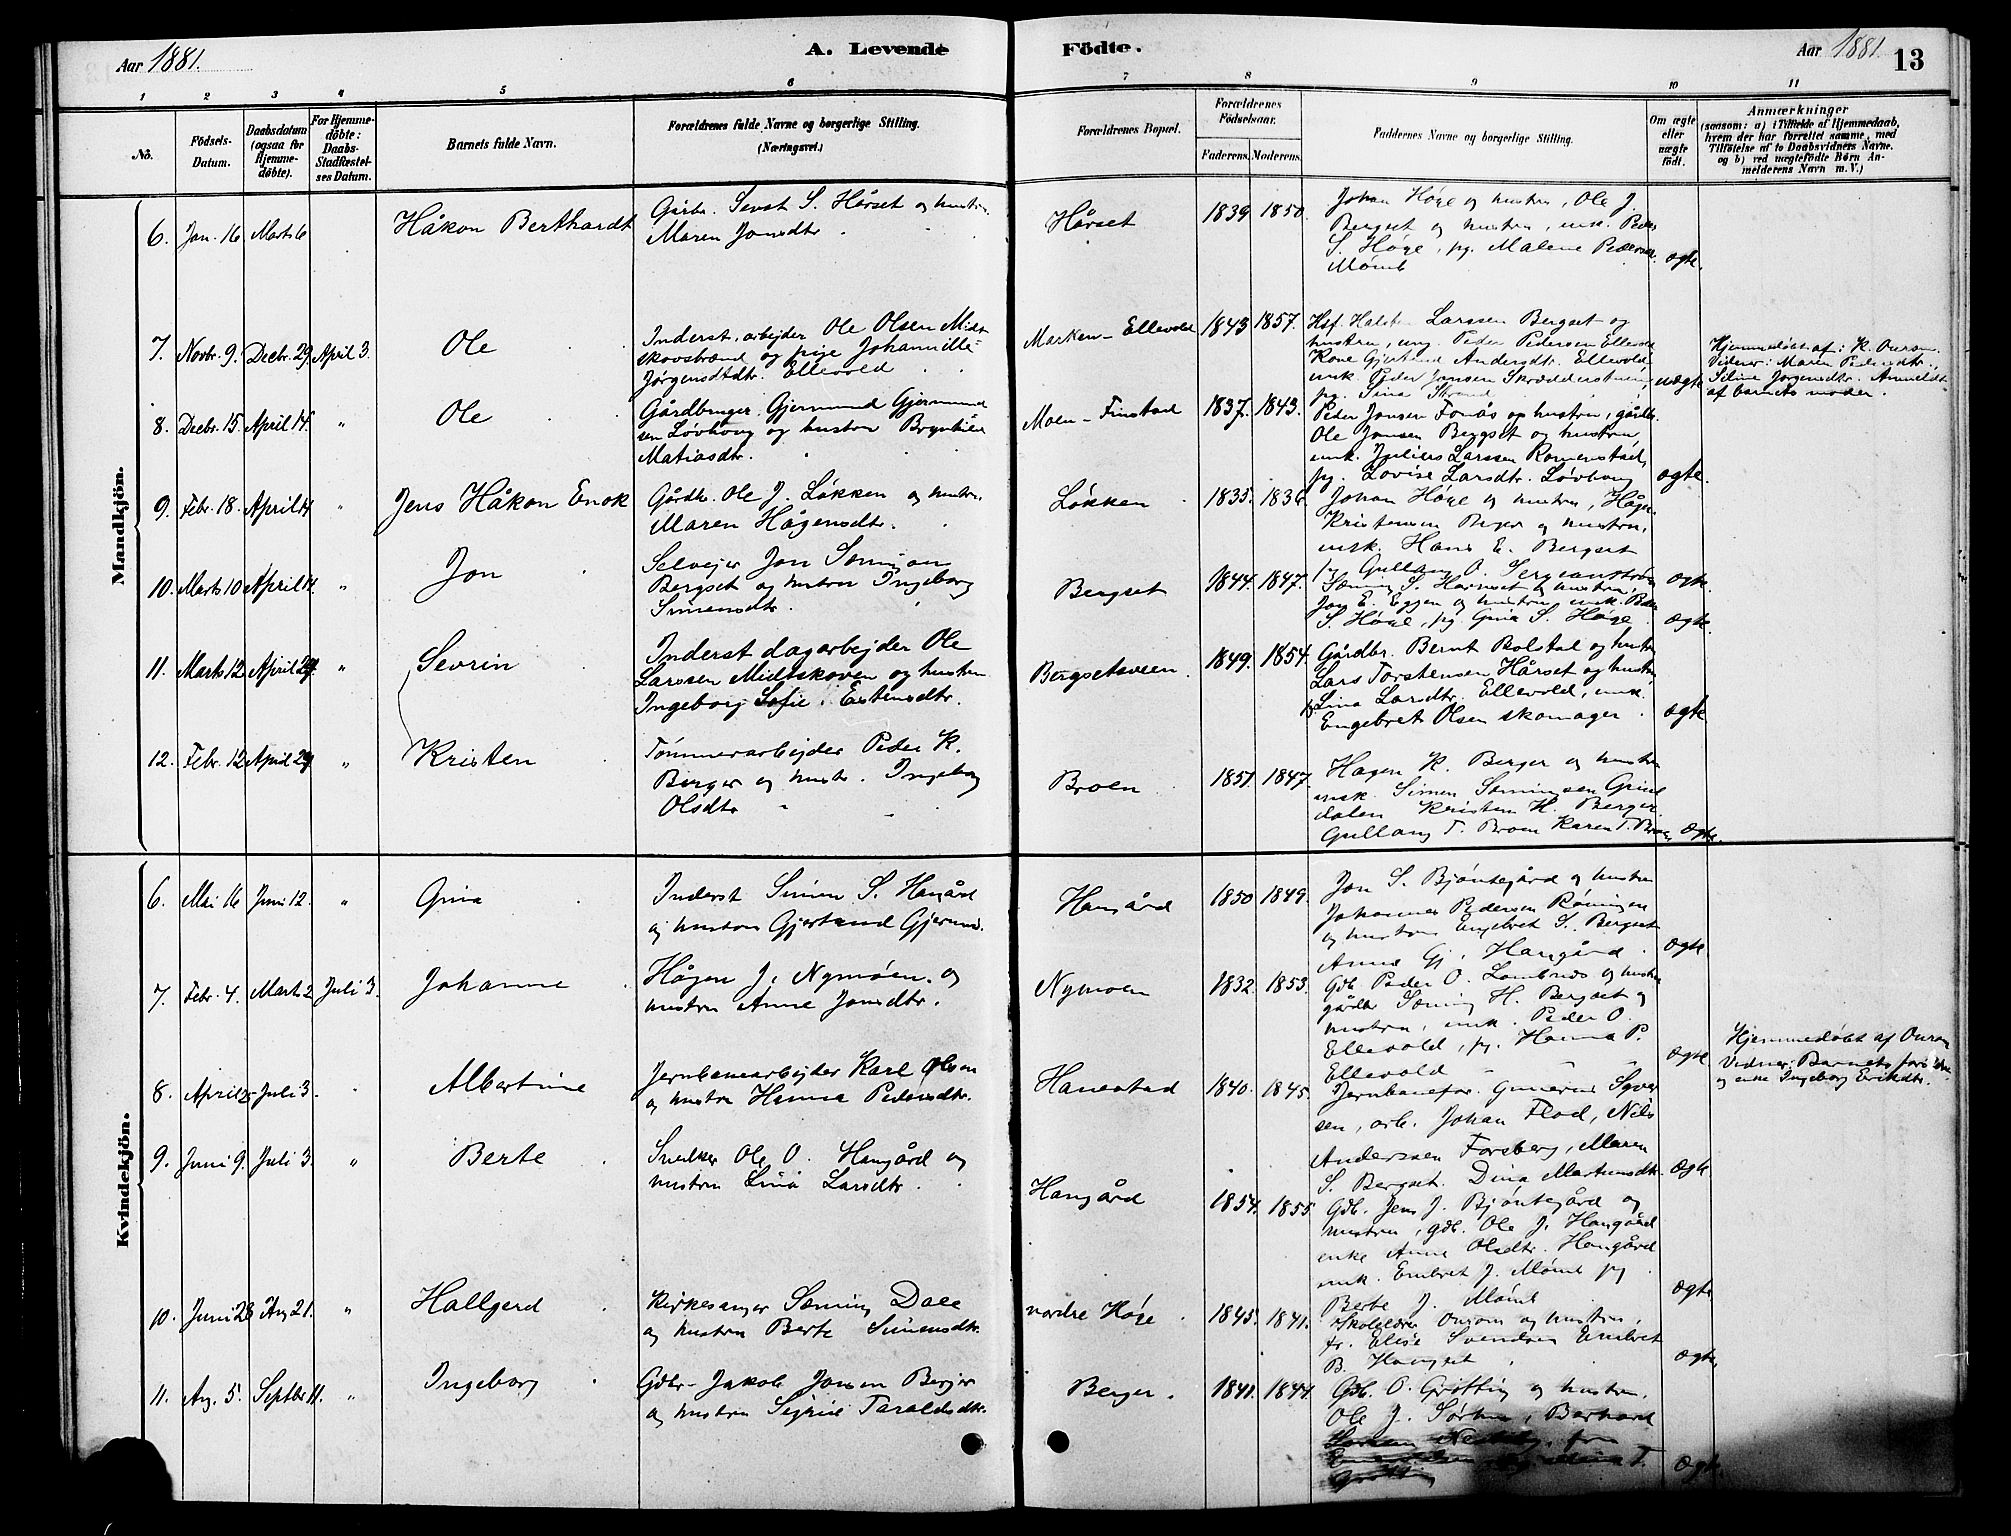 Aar 1881.
A. Levende
Födte.
Aar 1881.
13
1 2 3 4 5 6 7 8 9 10 11
No.
Födsels-
Datum.
Daabsdatum
(ogsaa for
Hjemme-
döbte).
For Hjemme-
döbte:
Daabs-
Stadfæstel-
ses Datum.
Barnets fulde Navn.
Forældrenes fulde Navne og borgerlige Stilling.
(Næringsvei.)
Forældrenes Bopæl.
Forældrenes
Födselsaar.
Faderens. Moderens.
Faddernes Navne og borgerlige Stilling.
Om ægte
eller
uægte
födt.
Anmærkninger
(saasom: a) i Tilfælde af Hjemmedaab,
hvem der har forrettet samme, med
Tilföielse af to Daabsvidners Navne.
og b) ved uægtefödte Börn An-
melderens Navn m. V.)
Mandkjön.
6. Jan. 16 Marts 6
Håkon Berthardt
Gårbr. Sevat S. Hårset og hustru
Maren Jonsdtr.
Hårset
1839 1850.
Johan Høge og hustru, Ole J.
Bergset og hustru, unk. Peder
S. Høge, pg. Malene Pedersdtr.
Mømb
ægte.
7. Novbr. 9. Decbr. 29. April 3.
Ole
Inderst, arbejder Ole Olsen Midt
skovsbrænd og pige Johannille
Jørgensdtdtr. Ellevold
Marken-Ellevold
1843 1857.
Hsf. Halsten Larssen Bergset og
hustru, ung. Peder Pedersen Ellevold
Kone Gjertrud Andersdtr. Ellevold
unk. Peder Jonsen Skrædderstuen
pg. Sina Strand
uægte
Hjemmedøbt af: K. Ourom
Vidner: Maren Pedersdtr.
Siline Jørgensdtr. Anmeldt
af barnets moder.
8. Decbr. 15. April 14. "
Ole
Gårdbruger Gjermund Gjermund
sen Løvhaug og hustru Brynhild
Matiasdtr.
Moen-Finstad
1837. 1843.
Peder Jonsen Fonås og hustru, gårdb.
Ole Jonsen Bergset og hustru,
unk. Julius Larssen Romenstad,
pg. Lovise Larsdtr. Løvhaug
ægte.
9. Febr. 18. April 14 "
Jens Håkon Enok
Gårdbr. Ole J. Løkken og hustru
Maren Hågensdtr.
Løkken
1835. 1836.
Johan Høge og hustru, Hågen
Kristensen Berger og hustru,
unk. Hans E. Bergset
pg. Gullaug O.
ægte
10. Marts 10 April 14. "
Jon
Selvejer Jon Sæmingsen
Bergset og hustru Ingeborg
Simensdtr.
Bergset
1844. 1847.
Sæming S. Harsset og hustru,
Jon E. Eggen og hustru, unk. Peder
S. Høge, pg. Gina S. Høge
ægte.
11. Marts 12 April 24. "
Sevrin
Inderst dagarbejder Ole
Larssen Midtskoven og hustru
Ingeborg Sofie Estensdtr.
Bergsetsveen.
1849. 1854.
Gårdbr. Bernt Bolstad og hustru
Lars Torstensen Hårset og hustru
pg. Lina Larsdtr. Ellevold, unk.
Engebret Olsen skomager.
ægte
12. Febr. 12 April 24 "
Kristen
Tømmerarbejder Peder K.
Berger og hustr. Ingeborg
Olsdtr
Broen
1851. 1847.
Hagen K. Berger og hustru
unk. Simen Sæmingsen Grind
dalen Kristen H. Berger
Gullaug T. Broen Karen T. Broen
ægte.
Kvindekjön.
6. Mai 16 Juni 12. "
Gina
Inderst Simen S. Hangård
og hustru Gjertrud Gjermund.
Hangård
1850 1849.
Jon S. Bjøntegård og hustru
Johannes Pedersen Røningen
og hustru Engebret S. Bergset
Anne Gj. Hangård.
ægte
7. Febr. 4. Marts 2 Juli 3.
Johanne
Hågen J. Nymoen. og
hustru Anne Jonsdtr.
Nymoen
1832. 1853.
Gdb. Peder O. Lombnæs og hustru
gårdbr Sæming H. Bergset og
hustru, unk. Peder O.
Ellevold, pg. Hanna P.
Ellevold
ægte
Hjemmedøbt af Ourom
Vidner: Barnets forældre
og enke Ingeborg Eriksdtr.
8. April 25 Juli 3.
Albertine
Jernbanearbejder Karl Olsen
og hustru Hanna Pedersdtr.
Hanestad
1840. 1845.
Jernbanefor. Gunerius Syver
sen, arb. Johan Flod, Nils
Anderssen Forsberg, Maren
S. Bergset. Dina Martinsdtr.
ægte
9. Juni 9. Juli 3. "
Berte
Snedker Ole O. Hangård og
hustru Lina Larsdtr.
Hangård
1854. 1855
Gdb. Jens J. Bjøntegård og
hustru, gdb. Ole J. Hangård
enke Anne Olsdtr. Hangård
unk. Embret J. Mømb pg.
Berte J. Mømb
ægte
10. Juni 28 Aug 21. "
Hallgerd
Kirkesanger Sæming Dale
og hustru Berte Simensdtr.
nordre Høge
1845. 1841.
Skolelærer Ourom og hustru,
fr. Elise Svendsen Embret
B. Hangset
ægte.
11. Aug. 5. Septbr 11. "
Ingeborg
Gdbr- Jakob Jonsen Berger
og hustru Sigrid Taraldsdtr.
Berger.
1841. 1844.
Gdb. O. Grøtting og hustru.
Ole J. Sørhus, Berhard
Grøtting
ægte.